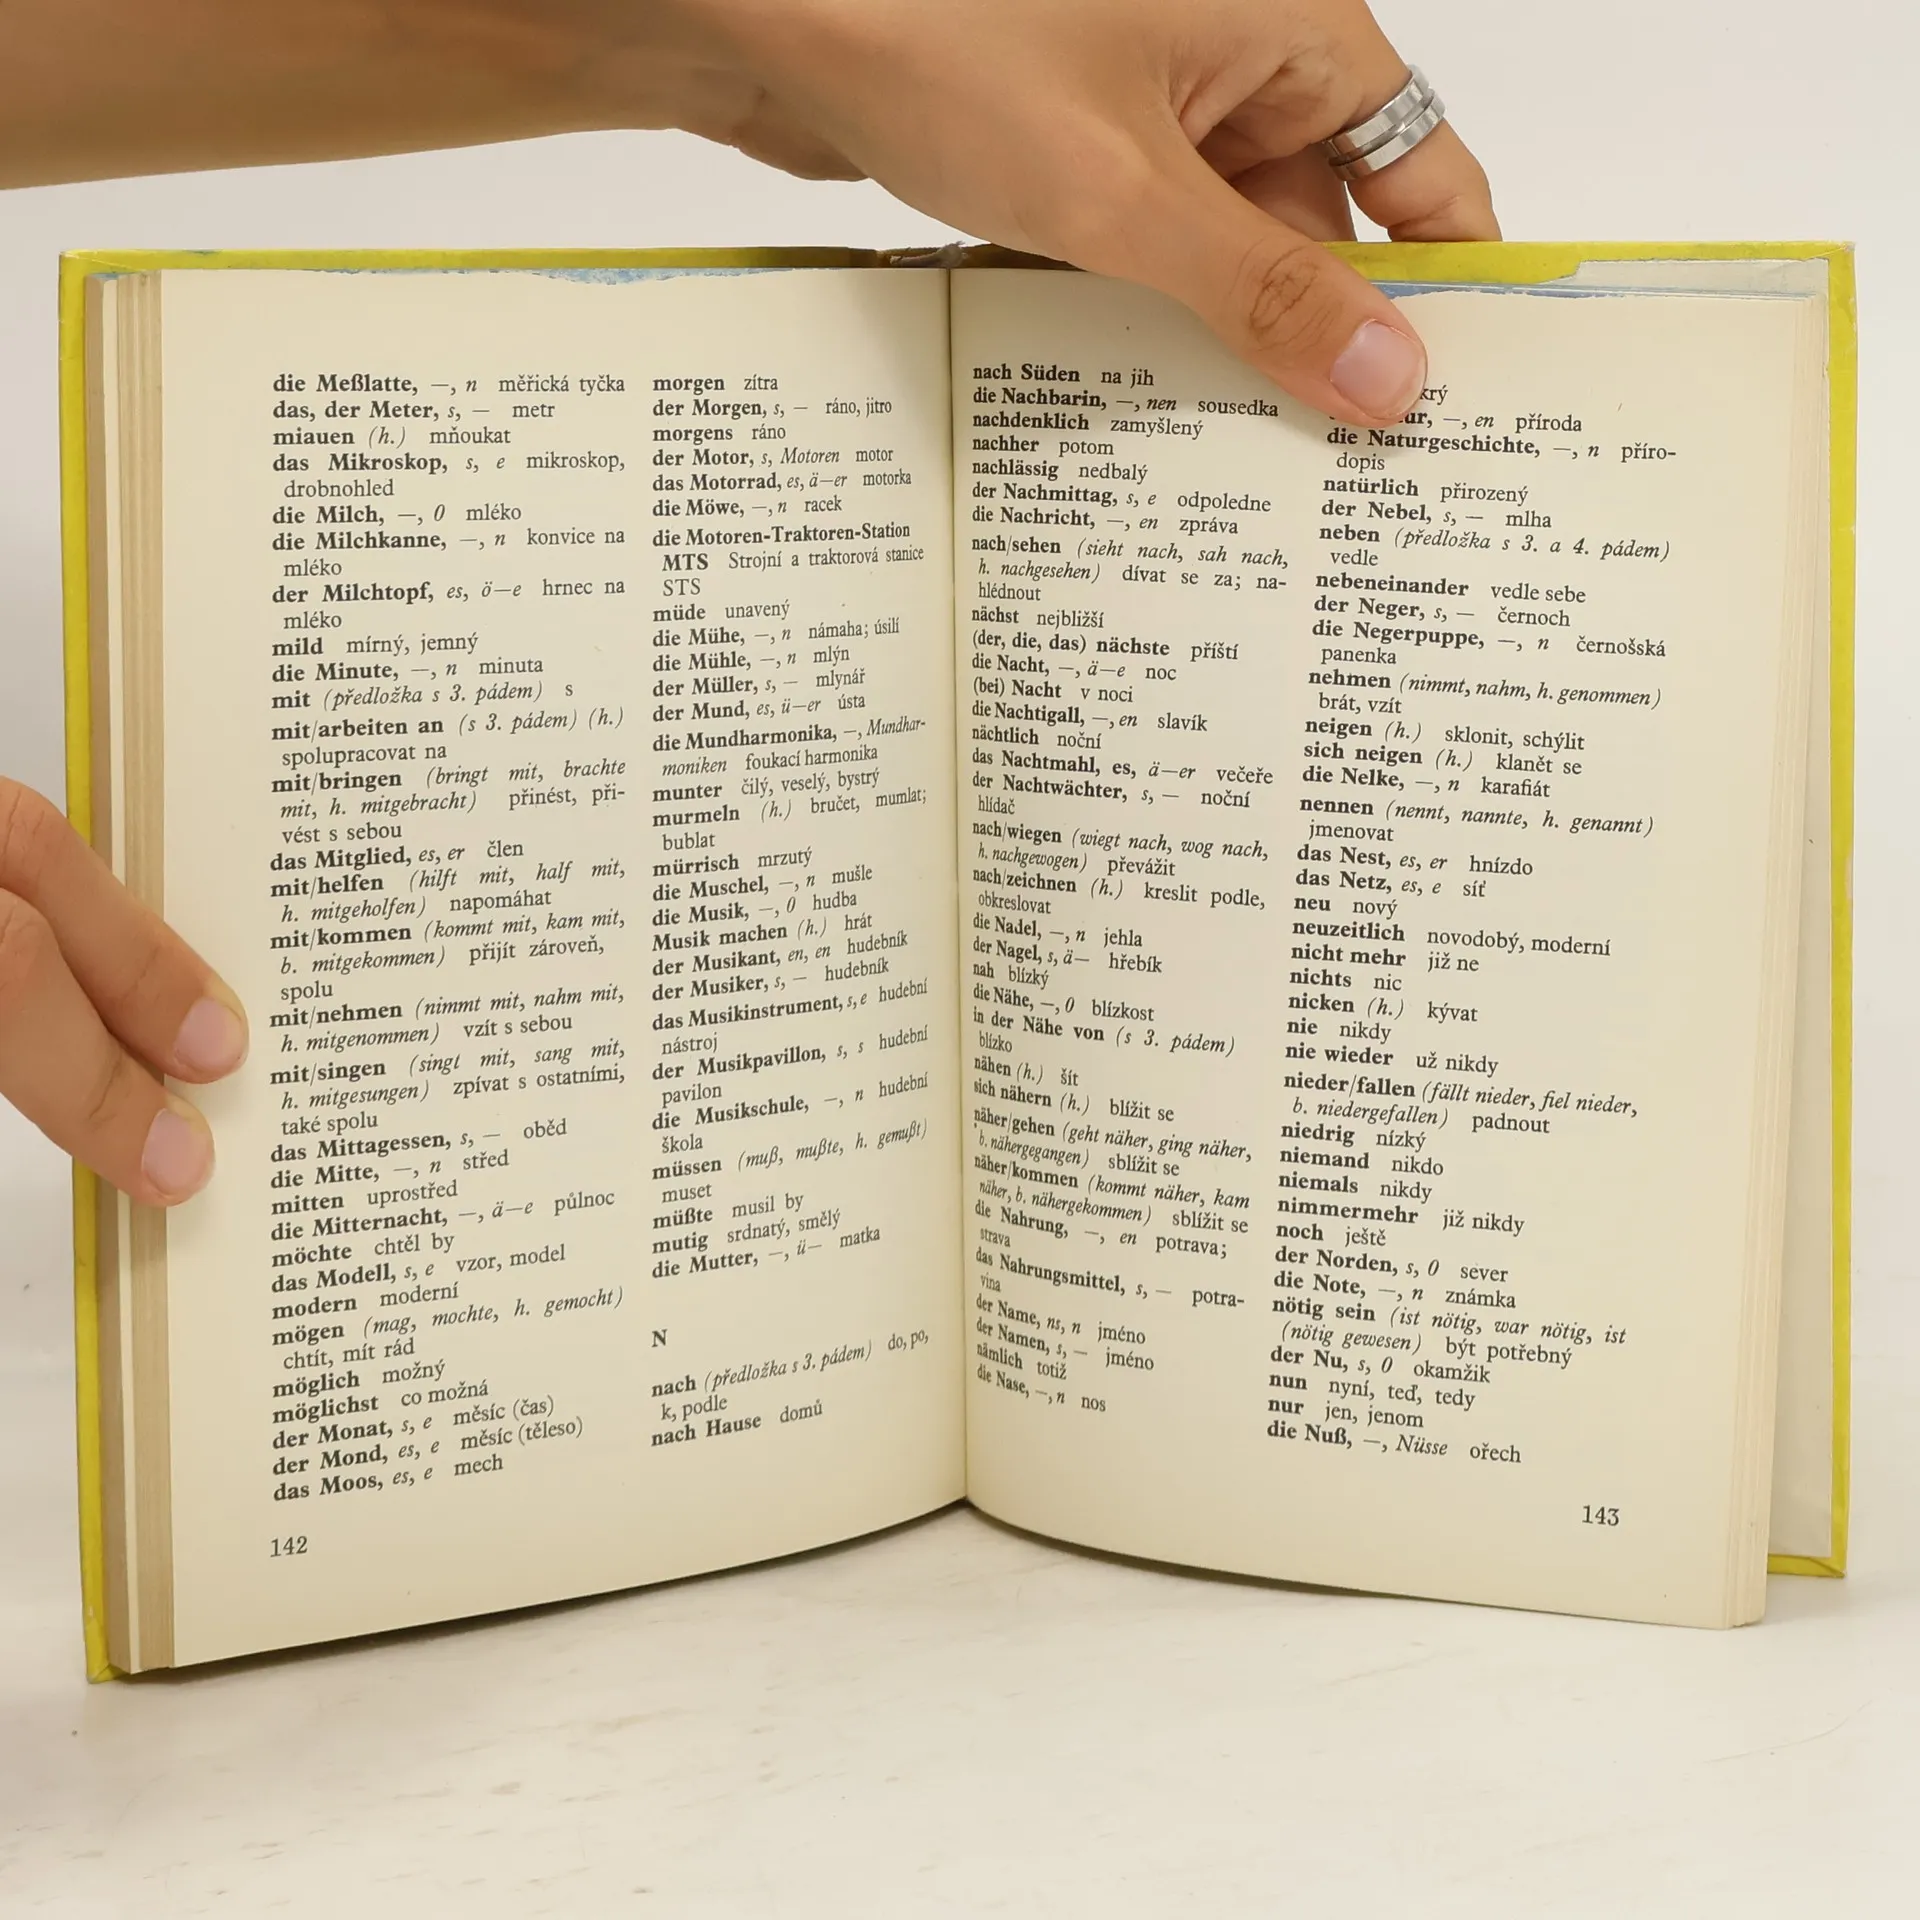 die Meßlatte, —, n měřická tyčka
das, der Meter, s, — metr
miauen (h.) mňoukat
das Mikroskop, s, e mikroskop,
drobnohled
die Milch, —, 0 mléko
die Milchkanne, —, n konvice na
mléko
der Milchtopf, es, ö—e hrnec na
mléko
mild mírný, jemný
die Minute, —, n minuta
mit (předložka s 3. pádem) s
mit/arbeiten an (s 3. pádem) (h.)
spolupracovat na
mit/bringen (bringt mit, brachte
mit, h. mitgebracht) přinést, při-
vést s sebou
das Mitglied, es, er člen
mit/helfen (hilft mit, half mit,
h. mitgeholfen) napomáhat
mit/kommen (kommt mit, kam mit,
b. mitgekommen) přijít zároveň,
spolu
mit/nehmen (nimmt mit, nahm mit,
h. mitgenommen) vzít s sebou
mit/singen (singt mit, sang mit,
h. mitgesungen) zpívat s ostatními,
také spolu
das Mittagessen, s, — oběd
die Mitte, —, n střed
mitten uprostřed
die Mitternacht, —, ä—e půlnoc
möchte chtěl by
das Modell, s, e vzor, model
modern moderní
mögen (mag, mochte, h. gemocht)
chtít, mít rád
möglich možný
möglichst co možná
der Monat, s, e měsíc (čas)
der Mond, es, e měsíc (těleso)
das Moos, es, e mech
142
morgen zítra
der Morgen, s, — ráno, jitro
morgens ráno
der Motor, s, Motoren motor
das Motorrad, es, ä—er motorka
die Möwe, —, n racek
die Motoren-Traktoren-Station
MTS Strojní a traktorová stanice
STS
müde unavený
die Mühe, —, n námaha; úsilí
die Mühle, —, n mlýn
der Müller, s, — mlynář
der Mund, es, ü—er ústa
die Mundharmonika, —, Mundhar-
moniken foukací harmonika
munter čilý, veselý, bystrý
murmeln (h.) bručet, mumlat;
bublat
mürrisch mrzutý
die Muschel, —, n mušle
die Musik, —, 0 hudba
Musik machen (h.) hrát
der Musikant, en, en hudebník
der Musiker, s, — hudebník
das Musikinstrument, s, e hudební
nástroj
der Musikpavillon, s, s hudební
pavilon
die Musikschule, —, n hudební
škola
müssen (muß, mußte, h. gemußt)
muset
müßte musil by
mutig srdnatý, smělý
die Mutter, —, ü— matka
N
nach (předložka s 3. pádem) do, po,
k, podle
nach Hause domů
nach Süden na jih
die Nachbarin, —, nen sousedka
nachdenklich zamyšlený
nachher potom
nachlässig nedbalý
der Nachmittag, s, e odpoledne
die Nachricht, —, en zpráva
nach/sehen (sieht nach, sah nach,
h. nachgesehen) dívat se za; na-
hlédnout
nächst nejbližší
(der, die, das) nächste příští
die Nacht, —, ä—e noc
(bei) Nacht v noci
die Nachtigall, —, en slavík
nächtlich noční
das Nachtmahl, es, ä—er večeře
der Nachtwächter, s, — noční
hlídač
nach/wiegen (wiegt nach, wog nach,
h. nachgewogen) převážit
nach/zeichnen (h.) kreslit podle,
obkreslovat
die Nadel, —, n jehla
der Nagel, s, ä— hřebík
nah blízký
die Nähe, —, 0 blízkost
in der Nähe von (s 3. pádem)
blízko
nähen (h.) šít
sich nähern (h.) blížit se
näher/gehen (geht näher, ging näher,
b. nähergegangen) sblížit se
näher/kommen (kommt näher, kam
näher, b. nähergekommen) sblížit se
die Nahrung, —, en potrava;
strava
das Nahrungsmittel, s, — potra-
vina
der Name, ns, n jméno
der Namen, s, — jméno
nämlich totiž
die Nase, —, n nos
—, en příroda
die Naturgeschichte, —, n příro-
dopis
natürlich přirozený
der Nebel, s, — mlha
neben (předložka s 3. a 4. pádem)
vedle
nebeneinander vedle sebe
der Neger, s, — černoch
die Negerpuppe, —, n černošská
panenka
nehmen (nimmt, nahm, h. genommen)
brát, vzít
neigen (h.) sklonit, schýlit
sich neigen (h.) klanět se
die Nelke, —, n karafiát
nennen (nennt, nannte, h. genannt)
jmenovat
das Nest, es, er hnízdo
das Netz, es, e síť
neu nový
neuzeitlich novodobý, moderní
nicht mehr již ne
nichts nic
nicken (h.) kývat
nie nikdy
nie wieder už nikdy
nieder/fallen (fällt nieder, fiel nieder,
b. niedergefallen) padnout
niedrig nízký
niemand nikdo
niemals nikdy
nimmermehr již nikdy
noch ještě
der Norden, s, 0 sever
die Note, —, n známka
nötig sein (ist nötig, war nötig, ist
(nötig gewesen) být potřebný
der Nu, s, 0 okamžik
nun nyní, teď, tedy
nur jen, jenom
die Nuß, —, Nüsse ořech
143